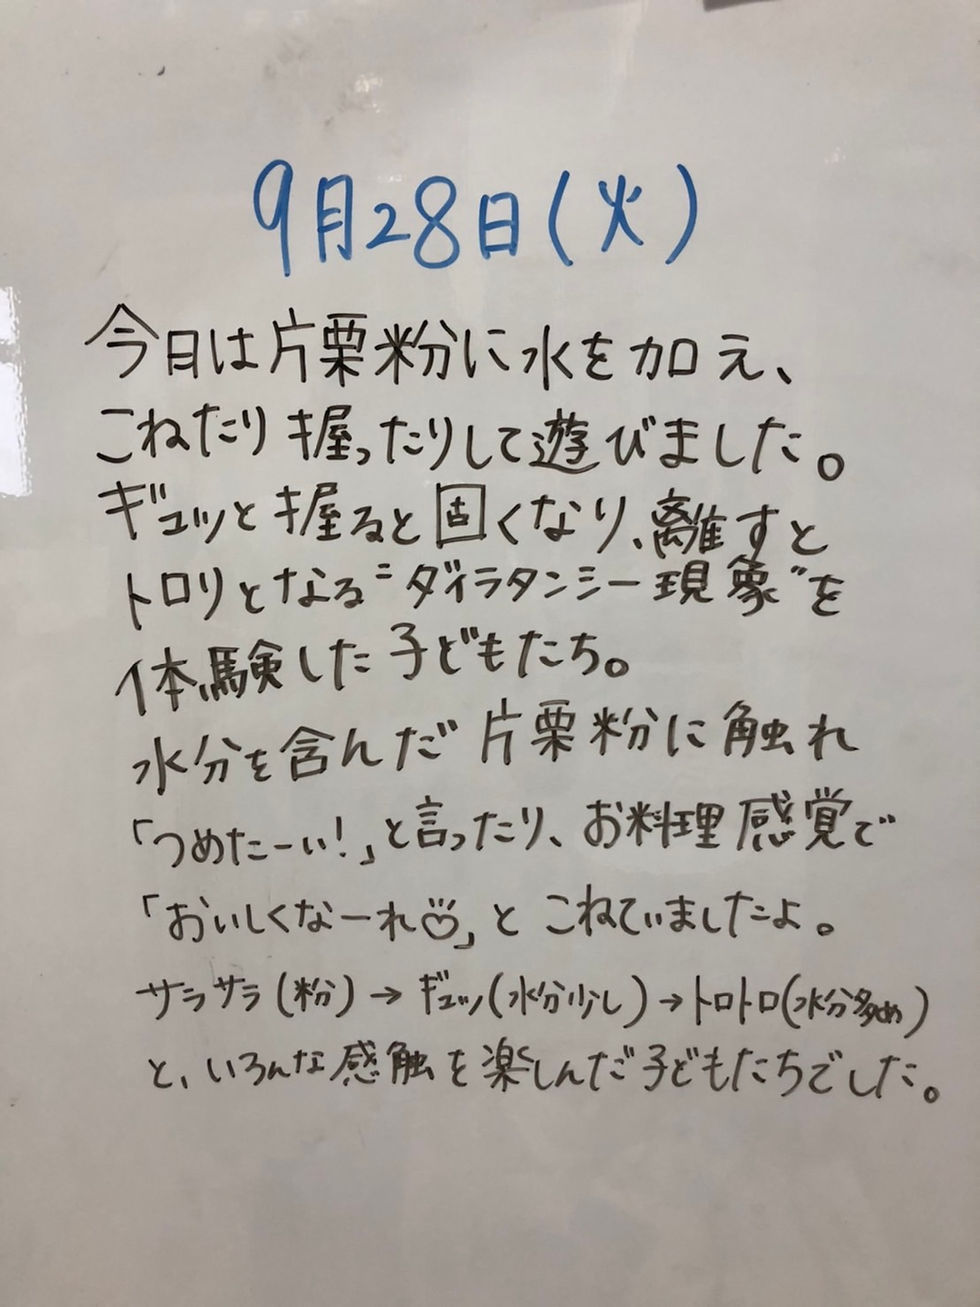 9月28日(火)
今日は片栗粉に水を加え、
こねたり握ったりして遊びました。
ギュッと握ると固くなり、離すと
トロリとなる"ダイラタンシー現象"を
体験した子どもたち。
水分を含んだ片栗粉に触れ
「つめたーい!」と言ったり、お料理感覚で
「おいしくなーれ」とこねていましたよ。
サラサラ(粉)→ギュッ(水分少し)→トロトロ(水分多め)
と、いろんな感触を楽しんだ子どもたちでした。